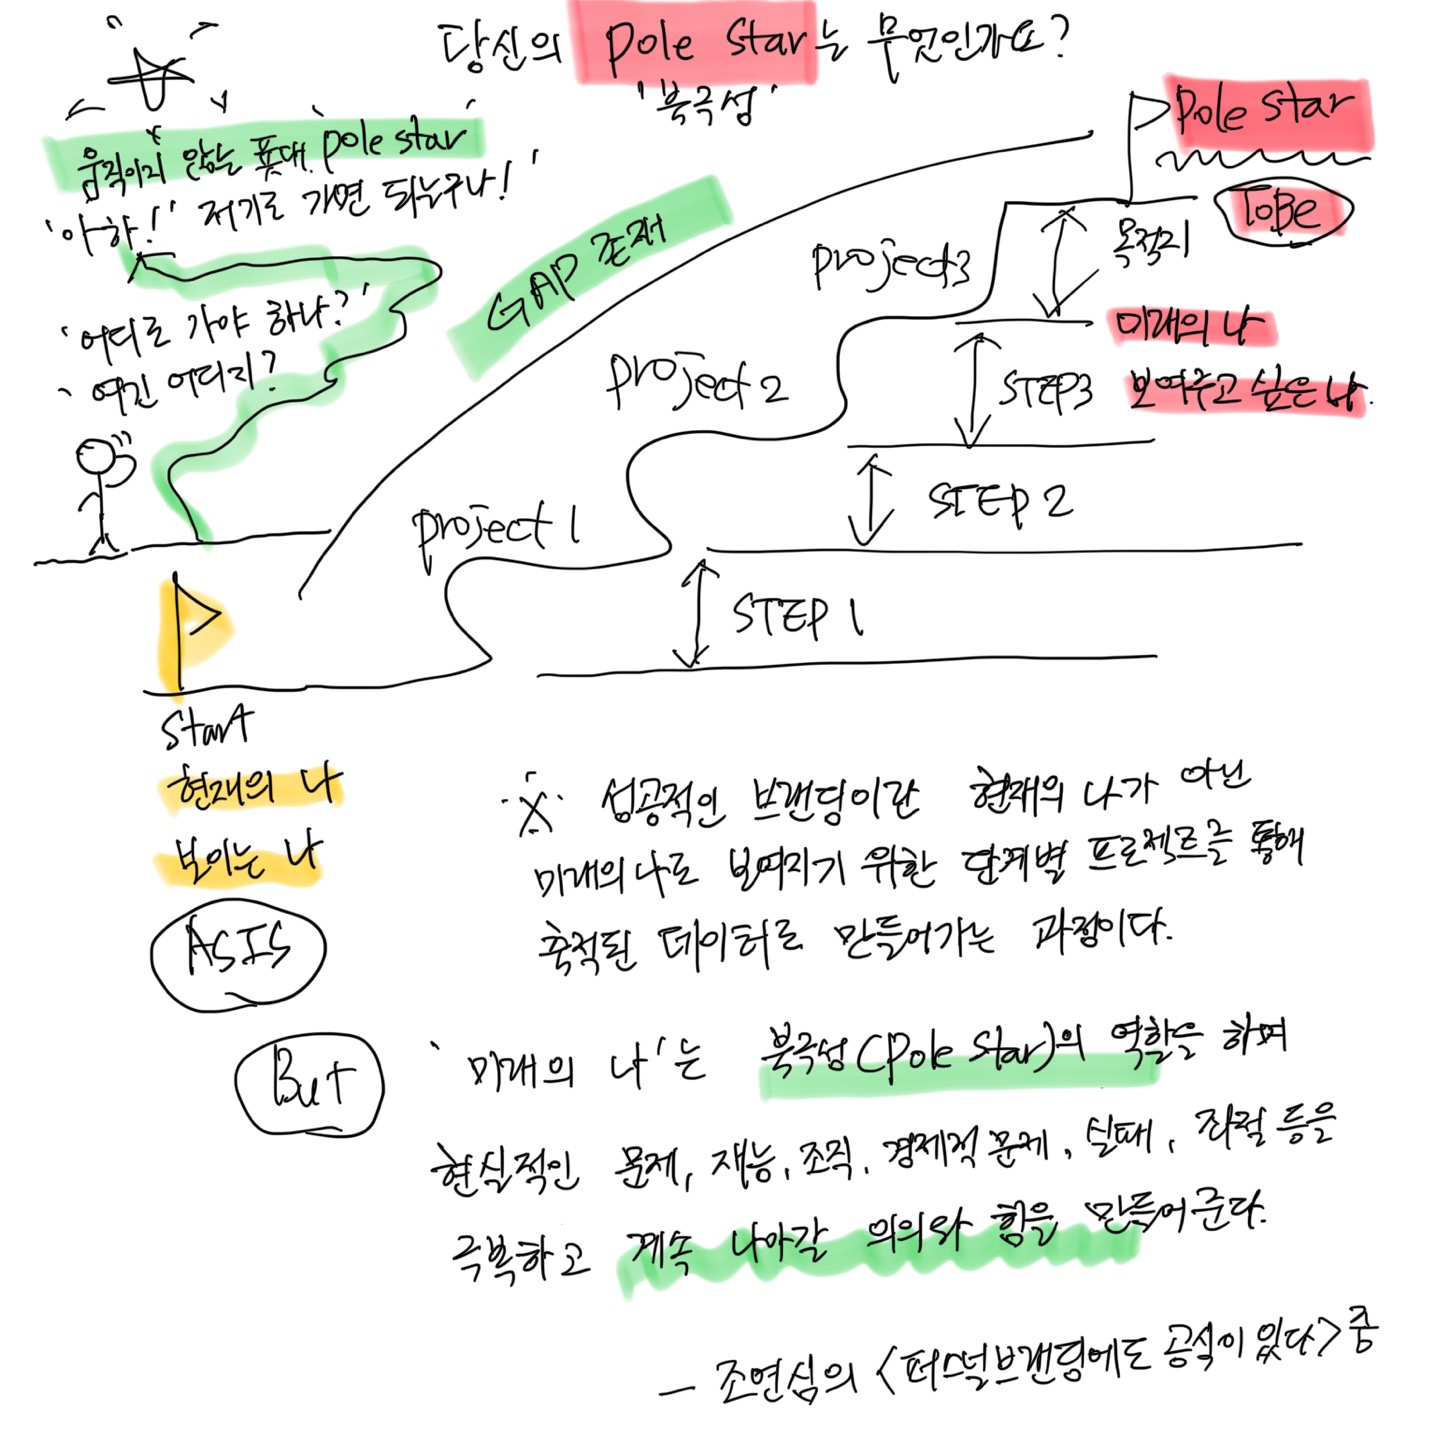 당신의 pole star는 무엇인가요?
'북극성'
움직이지 않는 푯대 'pole star'
'아하!' 저기로 가면 되는구나!'
'어디로 가야 하나?'
'여긴 어디지?
GAP 존재
pole star
ToBe
목적지
project3
미래의 나
STEP3 보여주고 싶은 나.
project2
STEP 2
project1
STEP 1
Start
현재의 나
보이는 나
ASIS
※ 성공적인 브랜딩이란 현재의 나가 아닌
미래의 나로 보여지기 위한 단계별 프로젝트를 통해
축적된 데이터로 만들어가는 과정이다.
But '미래의 나'는 북극성(pole star)의 역할을 하며
현실적인 문제, 재능, 조직, 경제적 문제, 실패, 좌절 등을
극복하고 계속 나아갈 의의와 힘을 만들어준다.
- 조연심의 <퍼스널브랜딩에도 공식이 있다> 중